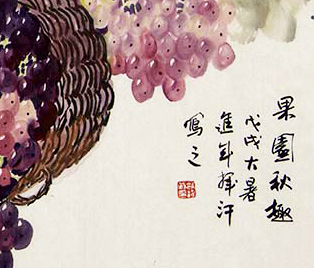 果園秋趣
戊戌大暑
進年揮汗
寫之